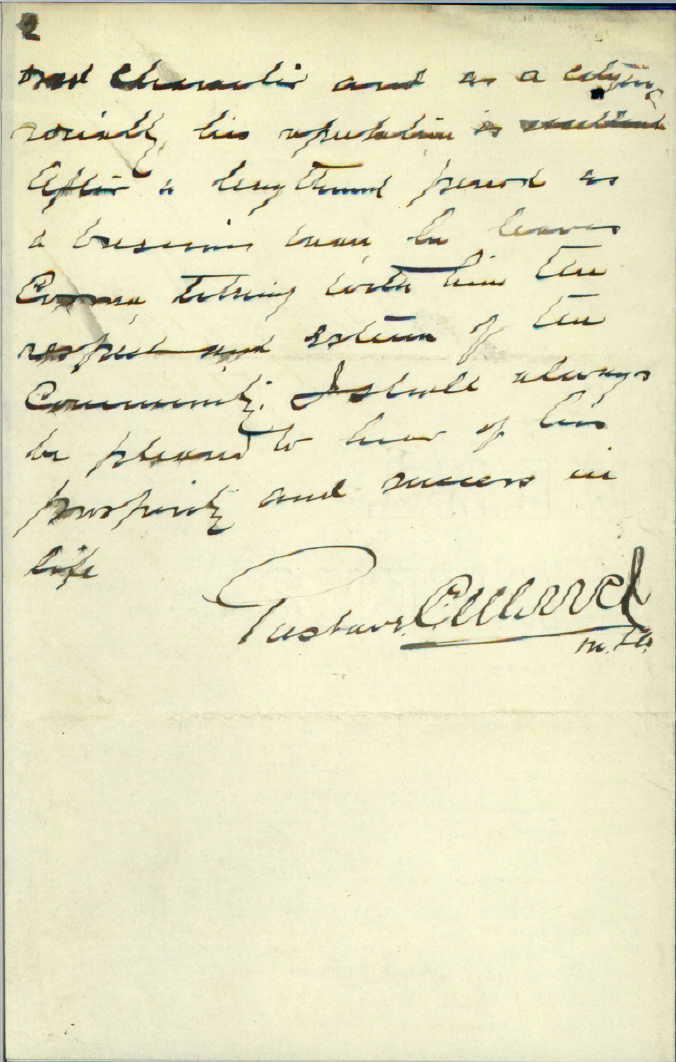 2
character and as a citizen,
socially, his reputation is excellent
After a lengthened period as
a business man he leaves
Cooma, taking with him the
respect and esteem of the
Community. I shall always
be pleased to hear of his
prosperity and success in
life
Gustave